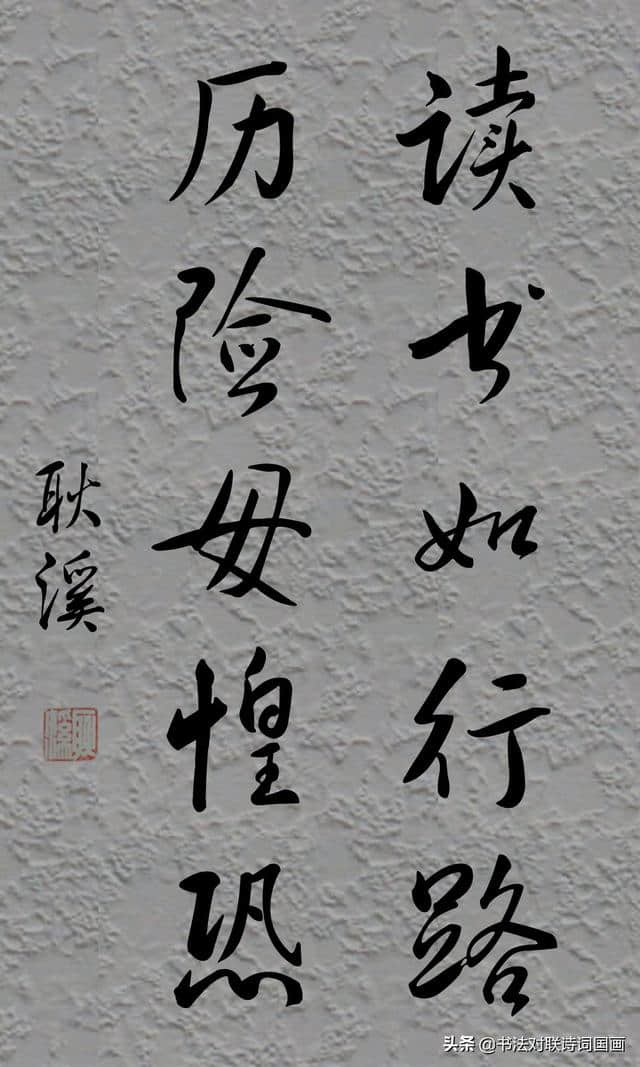 读书如行路
历险毋惶恐
耿溪
头条 @书法对联诗词国画